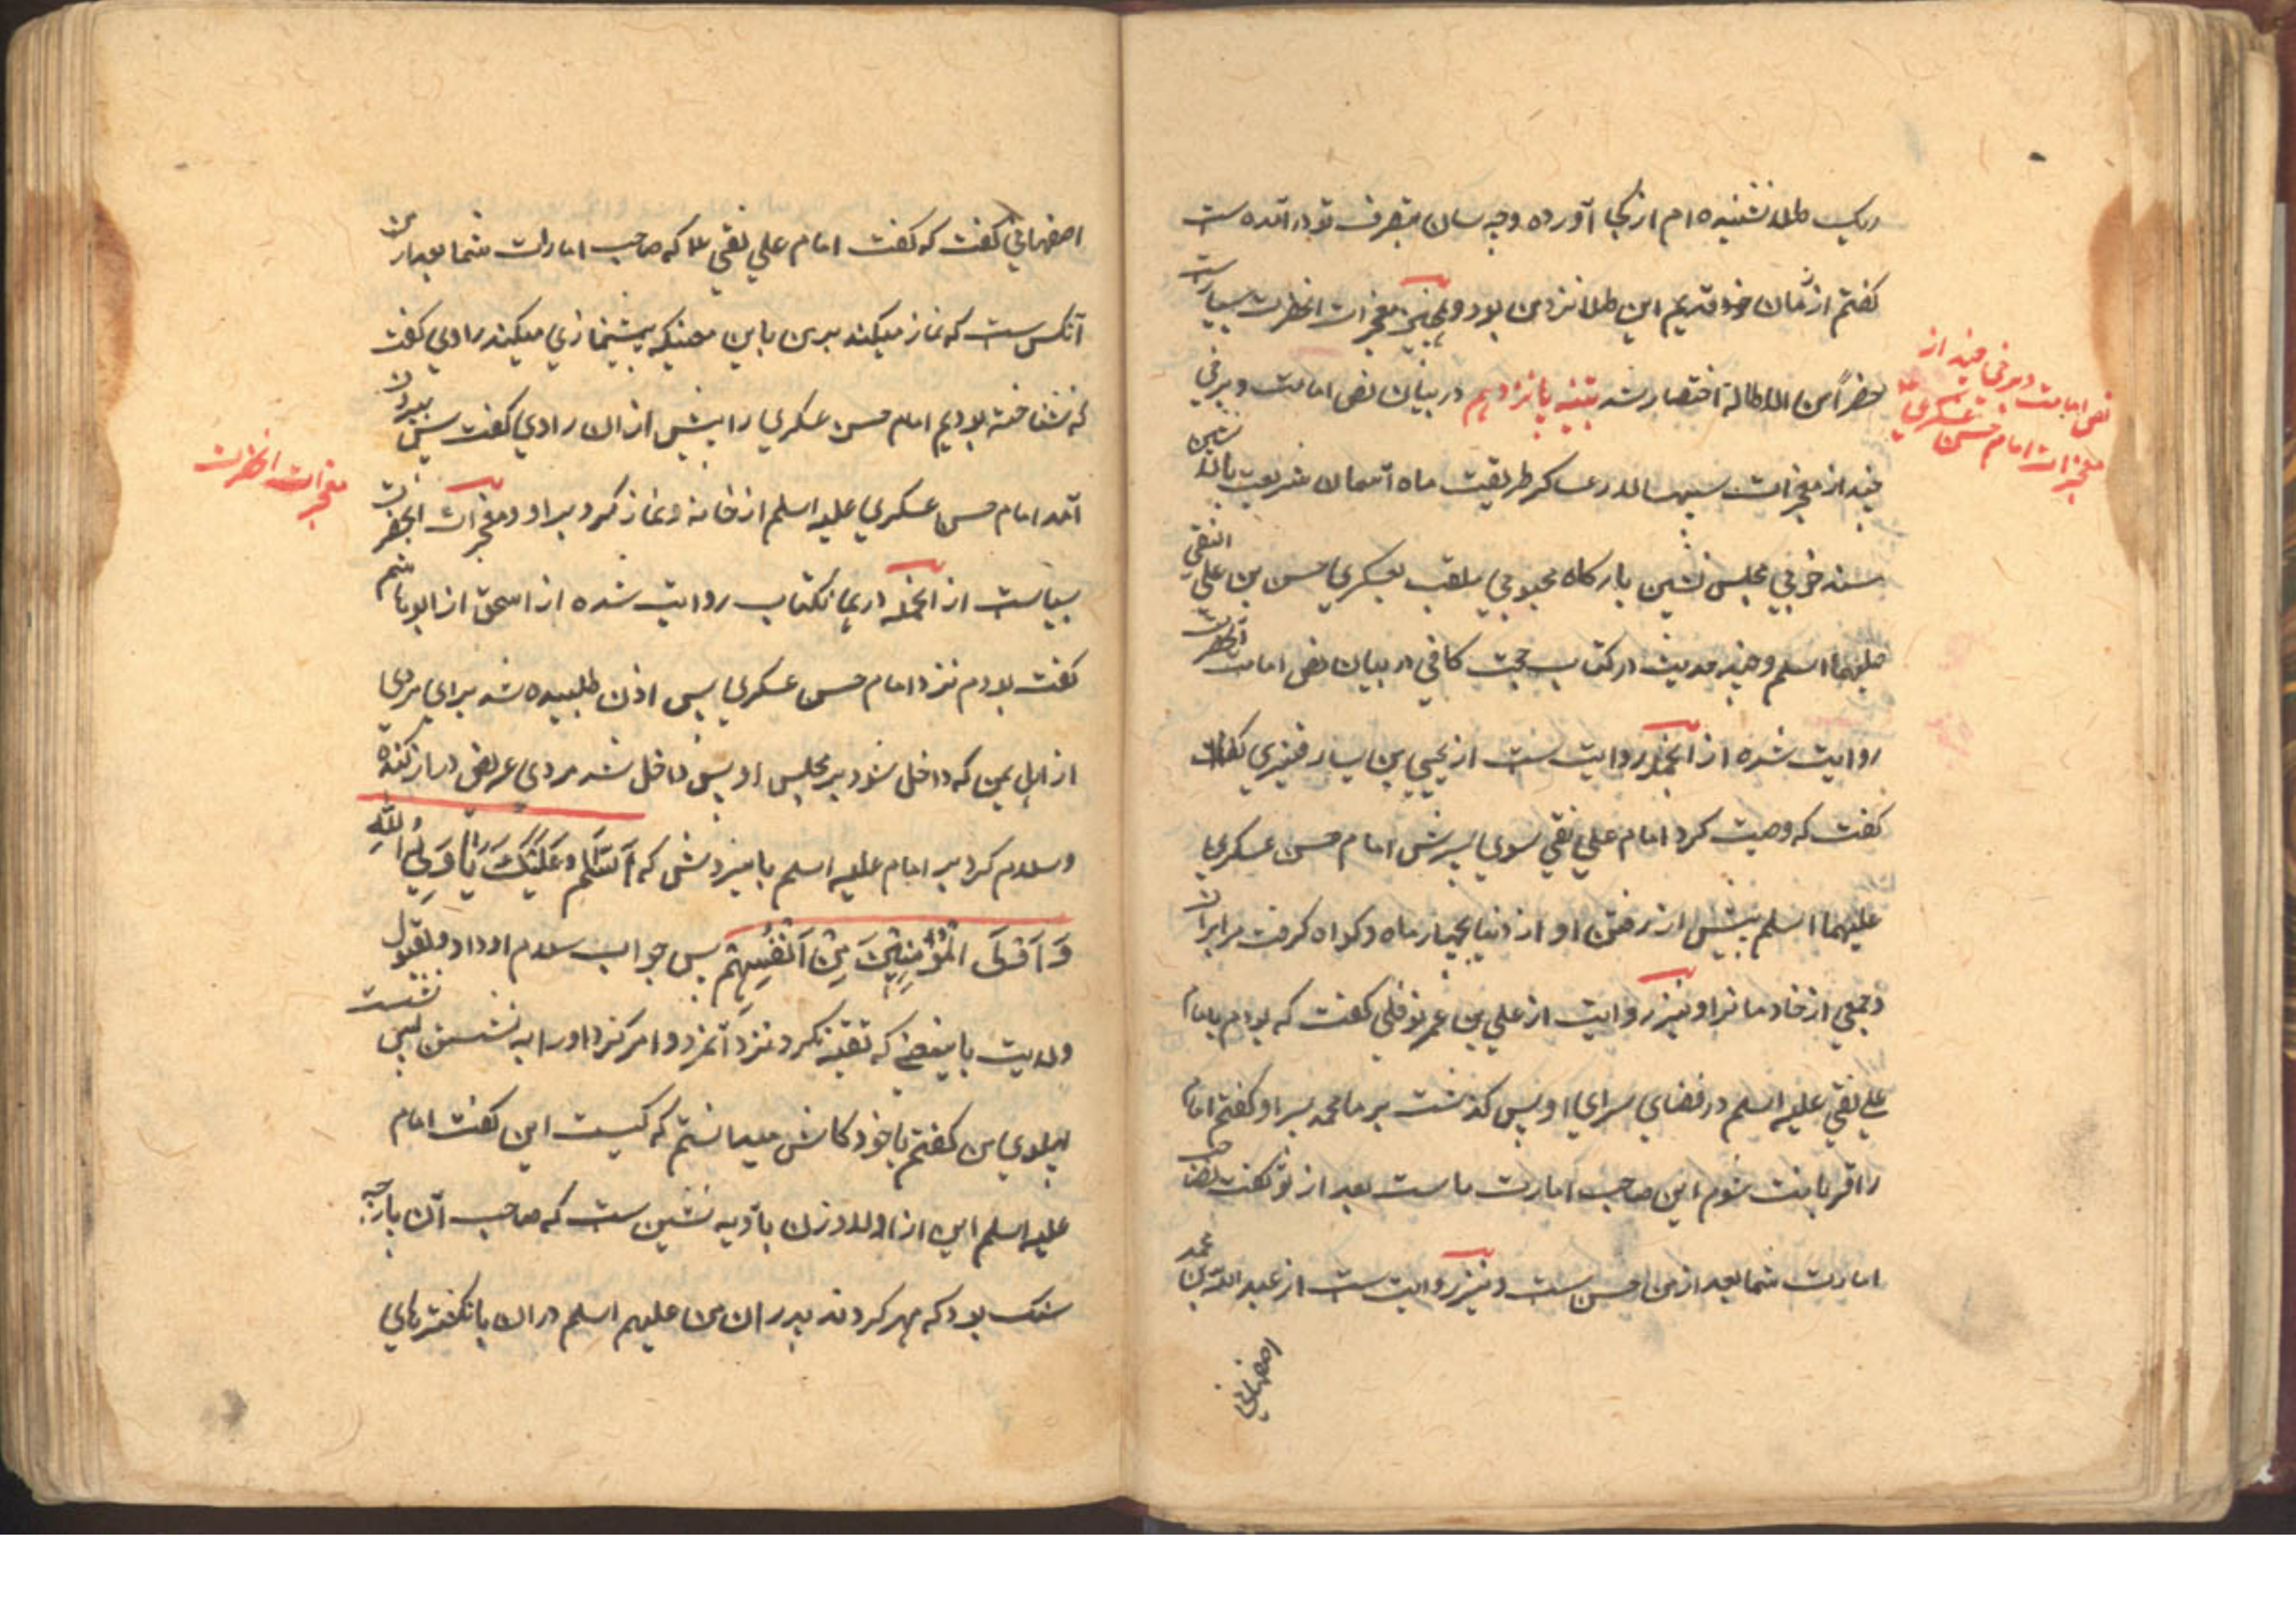 ریک طلا نشنیده ام از کجا آورده وچه سان بتصرف تو در آمده است
گفتم از زمان خود قدیم این طلا نزد من بود وهمچنین معجزات انحضرت بسیارست
حضراً من الاطالة اختصار شد تتبیه پانزدهم در بیان نص امامت و برخی
چند از معجزات سپهسالار عساکر طریقت ماه آسمان شریعت بالانشین
مسند خوبی مجلس نشین بارگاه محبوبی ملقب بعسکری حسن بن علی النقی
علیهما اسلم و چند حدیث در کتاب حجت کافی در بیان نص امامت آنحضرت
روایت شده از انجمله روایت ست از یحیی بن یسار قنبری که
گفت که وصیت کرد امام علی نقی سوی پسرش امام حسن عسکری
علیهما اسلم پیش از رفتن او از دنیا بچهار ماه و کواه کرفت مرا بران
و جمعی از خادمانرا و نیز روایت از علی بن عمر نوفلی گفت که بودم با امام
علی نقی علیه اسلم در فضای سرای او پس کذشت بر ما محمد پسر او گفتم امام
را قربانت شوم این صاحب امارت ماست بعد از تو گفت نه صاحب
امارت شما بعد از من حسن ست و نیز روایت ست از عبد الله بن محمد
اصفهانی
نص امامت و برخی چند از
معجزات امام حسن عسکری
اصفهانی گفت که گفت امام علی نقی علا که صاحب امارت شما بعد از من
آنکس ست که نماز میکند بر من باین معنیکه پیشنمازی میکند راوی گفت
که نشناخته بودیم امام حسن عسکری را پیش از ان راوی گفت پس بیرون
آمد امام حسن عسکری علیه اسلم از خانه و نماز کرد بر او ومعجزات انحضرت
بسیاست از انجمله در همانکتاب روایت شده از اسحق از ابو هاشم
گفت بودم نزد امام حسن عسکری پس اذن طلبیده شد برای مردی
از اهل یمن که داخل شود بر مجلس او پس داخل شد مردی عریض دراز کنده
وسلام کرد بر امام علیه اسلم بامیزدش که اَلسَّلَام وَعَلَیْکَ یَا وَلِیُّ اللّٰهِ
وَ اَوْلَی الْمُؤْمِنِیْنَ مِنْ اَنْفُسِهِمْ پس جواب سلام او داد وبقبول
ولایت باینمعنی که تقیه نکرد نزد آنمرد و امر کرد اورا به نشستن پس نشست
پهلوی من گفتم با خود کاش میدانستم که کیست این گفت امام
علیه اسلم این از اولاد زن بادیه نشین ست که صاحب آن پارچه
سنک بود که مهر کردند پدران من علیهم اسلم در ان بانکشترهای
معجزات انحضرت